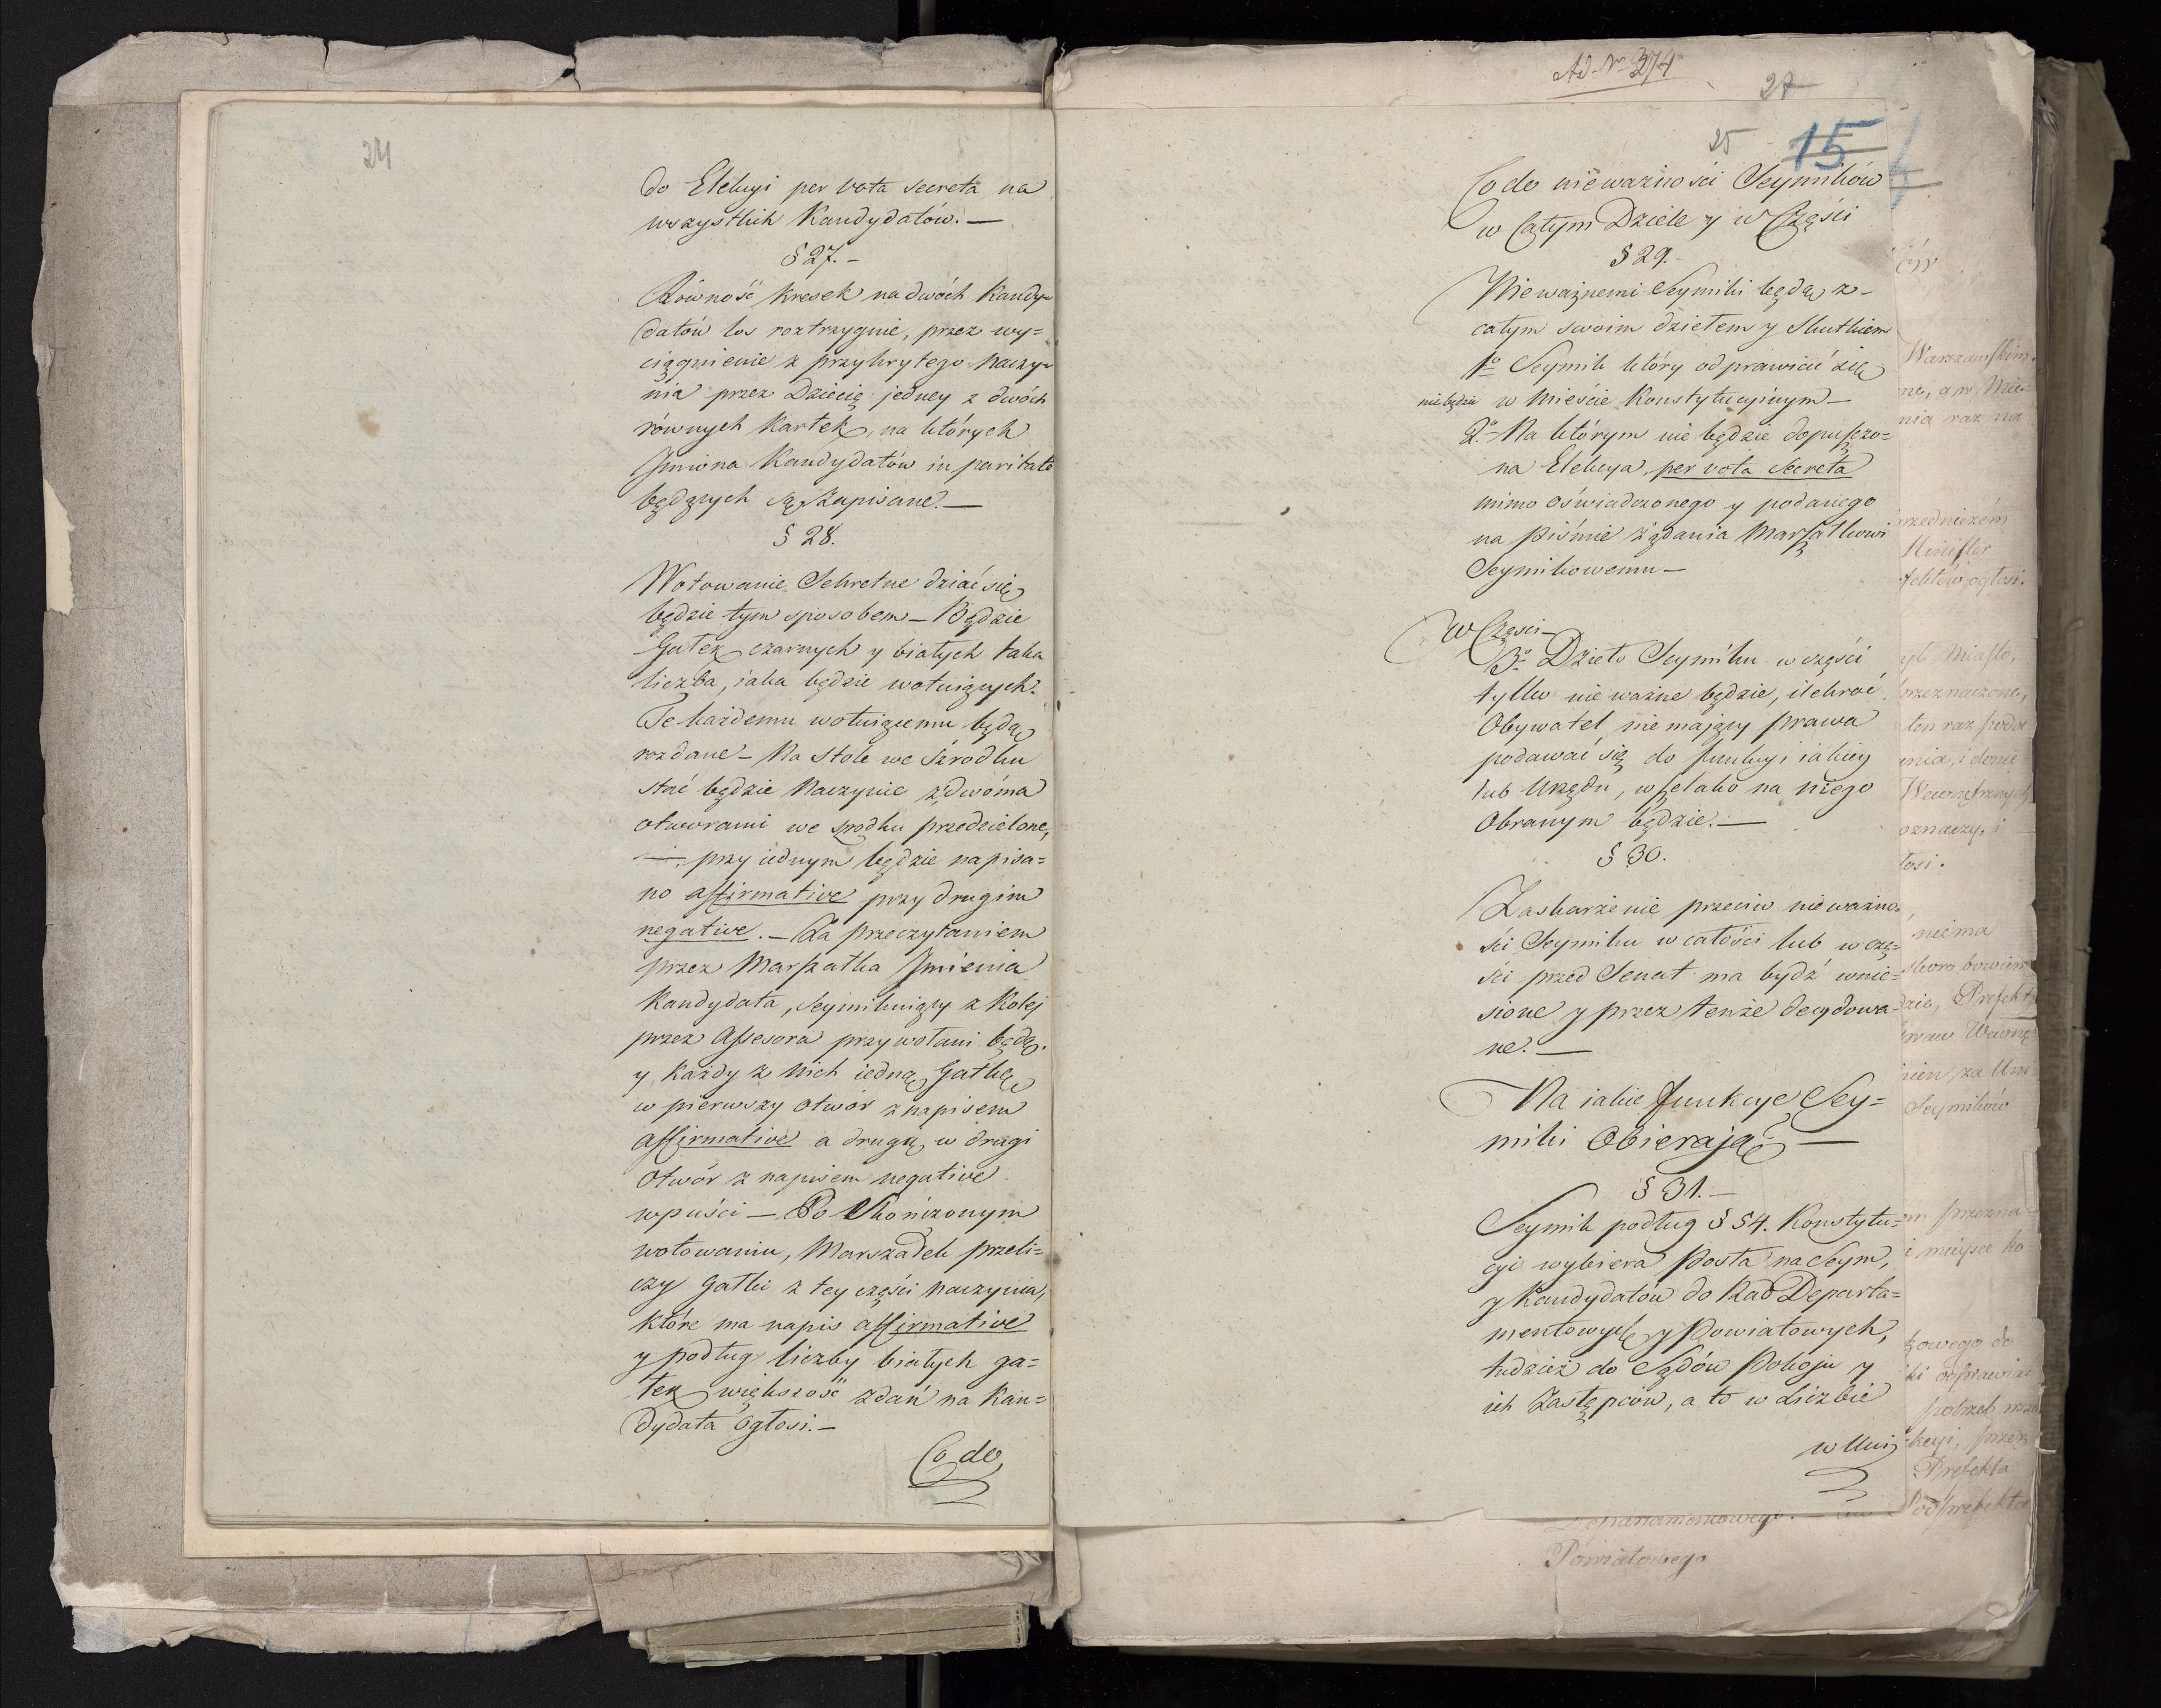 24
do Elekcyi per vota secreta na
wszystkich Kandydatów. —
§ 27. –
Równość kresek na dwóch Kandy=
datów los roztrzygnie, przez wy=
ciągnienie z przykrytego naczy=
nia przez Dziecię jedney z dwóch
równych Kartek, na których
Jmiona Kandydatów in paritate
będących są Zapisane. —
§ 28.
Wotowanie Sekretne dziać się
będzie tym sposobem – Będzie
Gałek czarnych y białych taka
liczba, iaka będzie wotuiących.
Te każdemu wotuiącemu będą
rozdane – Na Stole we śzrodku
stać będzie Naczynie z dwóma
otworami we szrodku przedzielone,
przy iednym będzie napisa=
no affirmative przy drugim
negative. – Za przeczytaniem
przez Marszałka Jmienia
Kandydata, Seymikuiący z Kolej
przez Assesora przywołani będą.
y każdy z nich iedną Gałkę
w pierwszy otwór z napisem
affirmative a drugą w drugi
Otwór z napisem negative
wpuści – Po Skończonym
wotowaniu, Marszałek przeli=
czy Gałki z tey części naczynia,
które ma napis affirmative
y podług liczby białych ga=
łek większość zdań na Kan=
dydata ogłosi. –
Co do
Ad Nr 374
27
25 15
Co do nieważności Seymików
w Całym Dziele y w Części
§ 29. –
Nieważnemi Seymiki będą z –
całym swoim dziełem y Skutkiem
1o Seymik który odprawiać się
nie będzie w Mieście Konstytucyinym –
2o – Na którym nie będzie dopuszczo=
na Elekcya per vota Secreta
mimo oświadczonego y podanego
na piśmie żądania Marszałkowi
Seymikowemu –
W Części –
3o Dzieło Seymiku w części
tylko nie ważne będzie, ilekroć
Obywatel nie mający prawa
podawać się do funkcyi iakiey
lub Urzędu, wszelako na niego
Obranym będzie. —
§ 30.
Zaskarżenie przeciw nieważno=
ści Seymiku w całości lub w czę=
ści przed Senat ma bydź wnie=
sione y przez tenże decydowa=
ne. —
Na iakie funkcye Sey=
miki Obieraią —
§ 31. –
Seymik podług § 54. Konstytu=
cyi wybiera Posła na Seym,
y Kandydatów do Rad Departa=
mentowych y Powiatowych,
tudzież do Sądów Pokoju y
ich Zastępców, a to w Liczbie
w Uni
Warszawskim
nia raz na
Minister
ogłosi.
Miasto,
przeznaczone,
ten raz poda
oznaczy, i
nie ma
skoro bowiem
Prefekt
Seymików
potrzeb
przez
Prefekta
Podprefekta
Departamentowego. –
Powiatowego